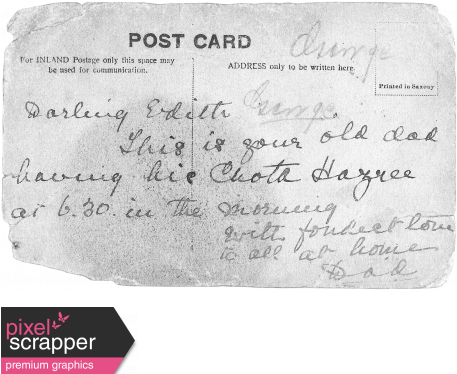 POST CARD
For INLAND Postage only this space may
be used for communication.
ADDRESS only to be written here.
Printed in Saxony
Darling Edith
This is your old dad
having his Chota Hazree
at 6.30. in the morning
with fondest love
to all at home
Dad
pixel
scrapper
premium graphics